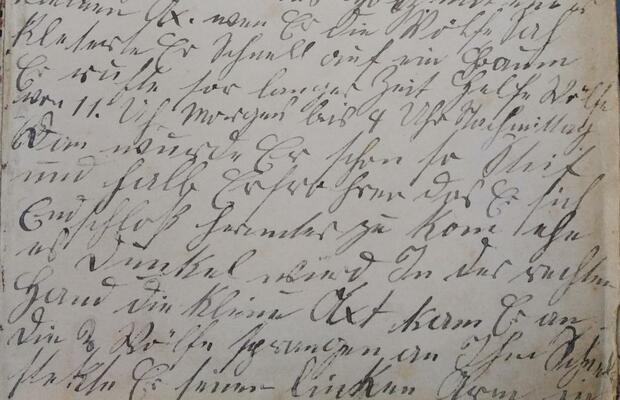 kleinen Ax. wen Er die Wölfe sah
kleterte Er Schnell auf ein Baum
Er rufte vor langer Zeit Helfe Wölfe
von 11. Uh Morgens bis 4 Uhr Nachmittag
Dan wurde Er schon so Steif
und halb Erfrohren das Er sich
Endschloß herunter zu kom ehe
es Dunkel wird In der rechten
Hand die kleine Axt kam Er an
die 3 Wölfe sprangen an Ihm
stekte Er seinen linken Arm